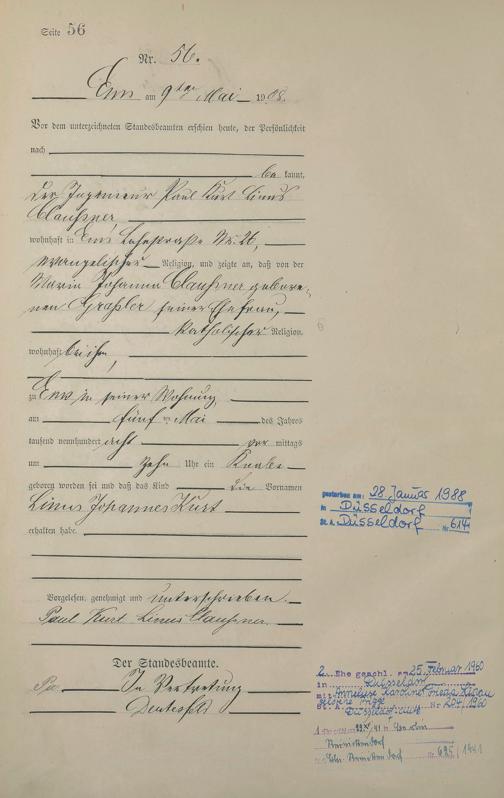 Seite 56
Nr. 56.
Ems am 9ten Mai 1908.
Vor dem unterzeichneten Standesbeamten erschien heute, der Persönlichkeit
nach
be kannt,
der Ingenieur Paul Kurt Linus
Claußner
wohnhaft in Ems Lahnstraße Nr.
evangelischer Religion, und zeigte an, daß von der
Maria Johanna Claußner gebore-
nen Graßler seiner Ehefrau,
katholischer Religion,
wohnhaft bei ihm,
zu Ems in seiner Wohnung
am fünf ten Mai des Jahres
tausend neunhundert acht vor mittags
um zehn Uhr ein Knabe
geboren worden sei und daß das Kind die Vornamen
Linus Johannes Kurt
erhalten habe.
Vorgelesen, genehmigt und unterschrieben.
Paul Kurt Linus Claußner.
Der Standesbeamte.
In Vertretung
gestorben am: 28. Januar 1988
in Düsseldorf
St. A. Düsseldorf Nr. 614
2. Ehe geschl. am 25. Februar 1960
in Düsseldorf
mit Anneliese Karoline
geborene
St. A. Düsseldorf Nr 204/1960
Nr 695/1941